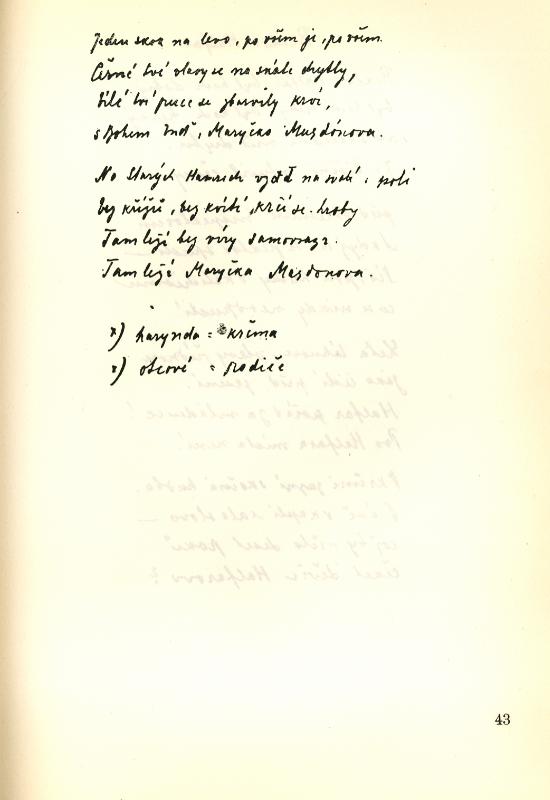 Jeden skok na levo, po všem je, po všem.
Černé tvé vlasy se na skále chytly,
bílé tvé ruce se zbarvily krví,
s Bohem buď, Maryčko Magdónova.
Na Starých Hamrech u zdi na
bez křížů, bez kvítí, krčí se hroby
Tam leží bez víry samovrazi.
Tam leží Maryčka Magdonova.
x) harynda = krčma
x) otcové = rodiče
43